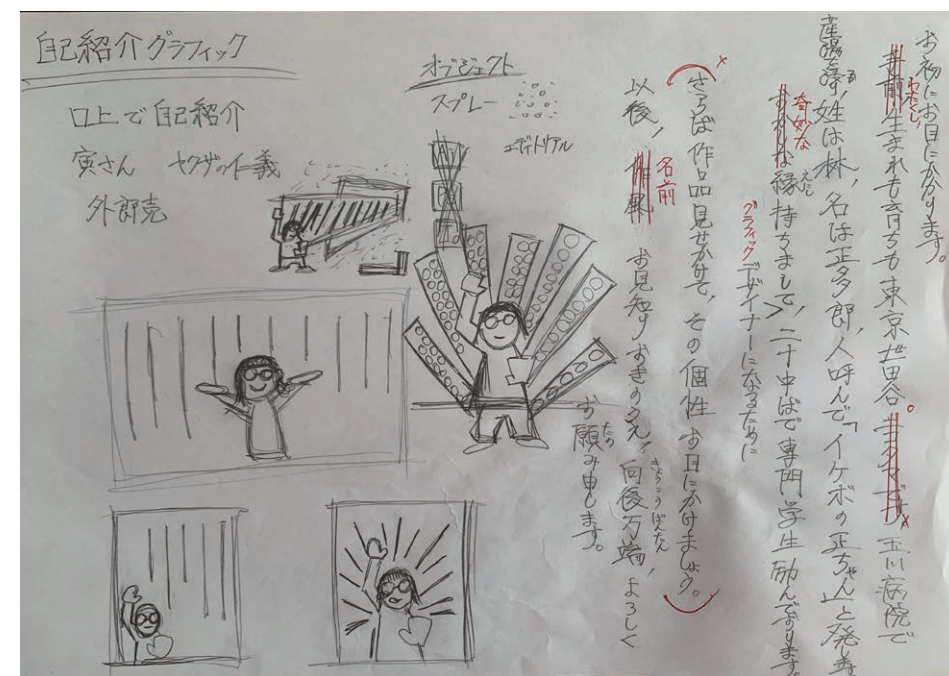 自己紹介グラフィック
口上で自己紹介
寅さん ヤクザの仁義
外郎売
オブジェクト
スプレー
エディトリアル
お初にお目にかかります。
わたくし、生まれも育ちも東京世田谷。玉川病院で
姓は林、名は正多郎、人呼んで「イケボの正ちゃん」と発します。
奇妙な縁持ちまして、二十中ばで専門学生励んでおります。
えにし
グラフィックデザイナーになるために
さらば作品見せかせて、その個性お目にかけましょう。
以後、名前お見知りおきのうえ、向後万端、よろしく
きょうこうばんたん
お願み申します。
たの